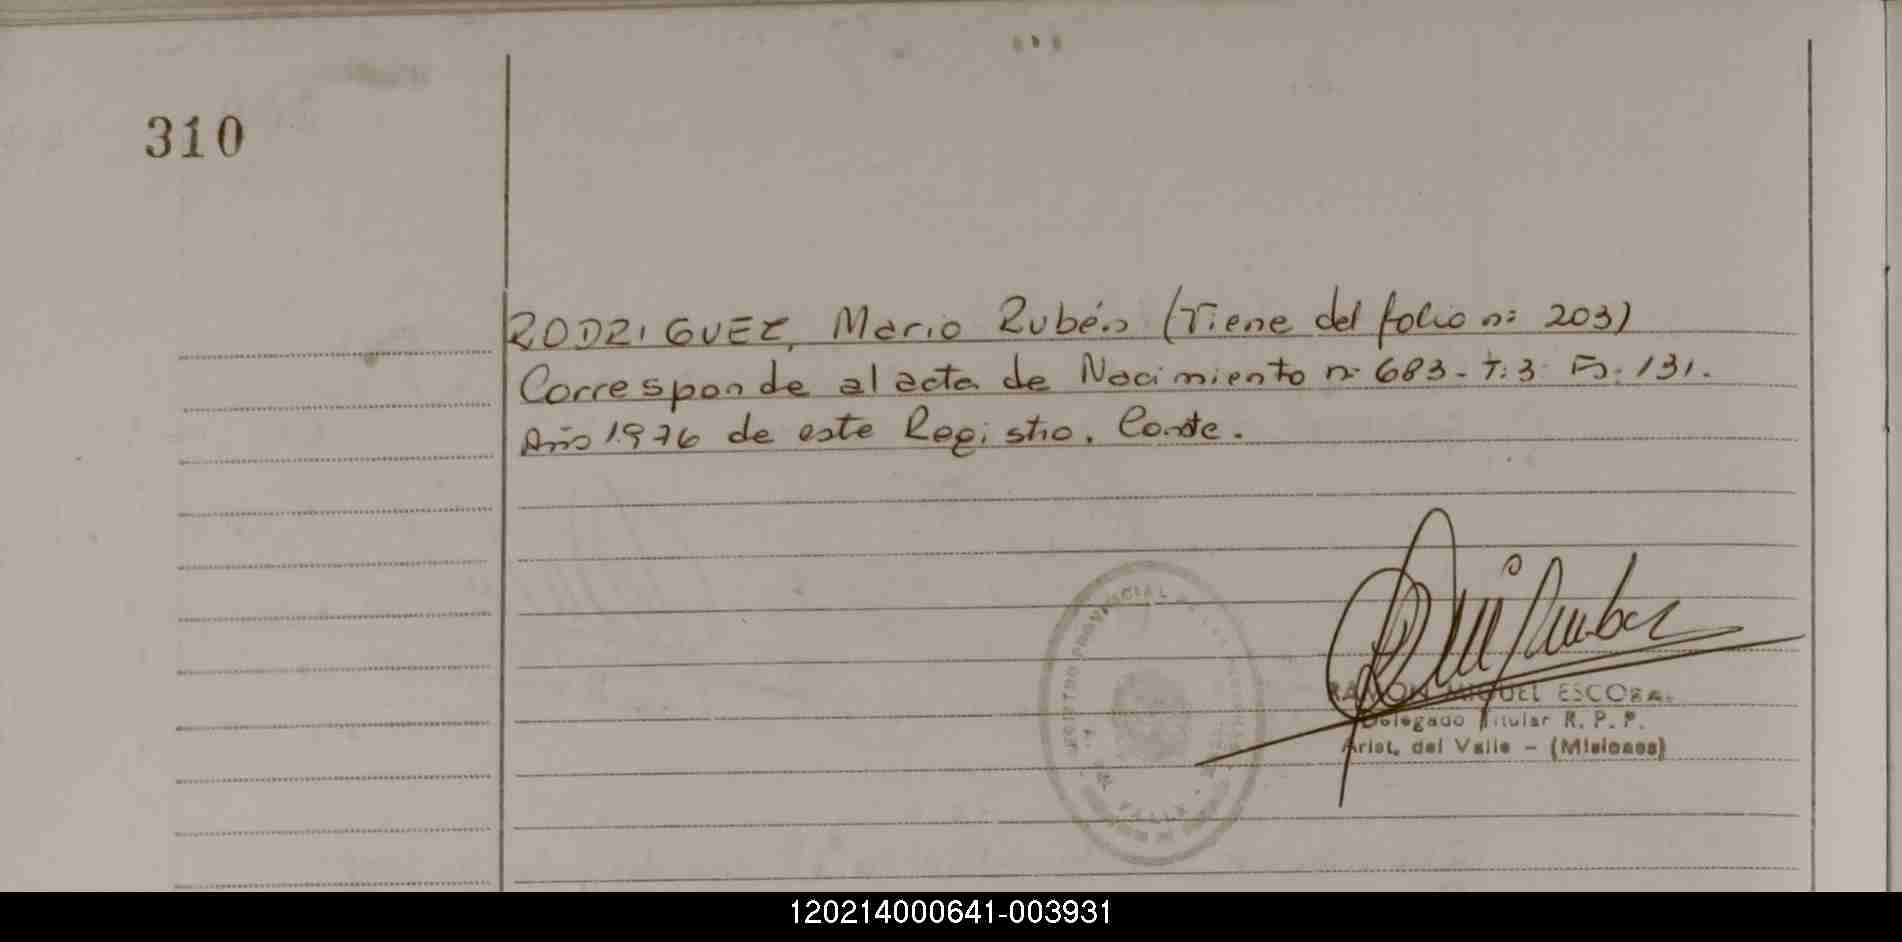 310
RODRIGUEZ, Mario Rubén (Viene del folio n: 203)
Corresponde al acta de Nacimiento nº 683 - T: 3 - Fº: 131.
Año 1976 de este Registro. Conste.
REGISTRO PROVINCIAL DE LAS PERSONAS
DEL VALLE
RAMON MIGUEL ESCOBAR
Delegado Titular R. P. P.
Arist. del Valle - (Misiones)
120214000641-003931